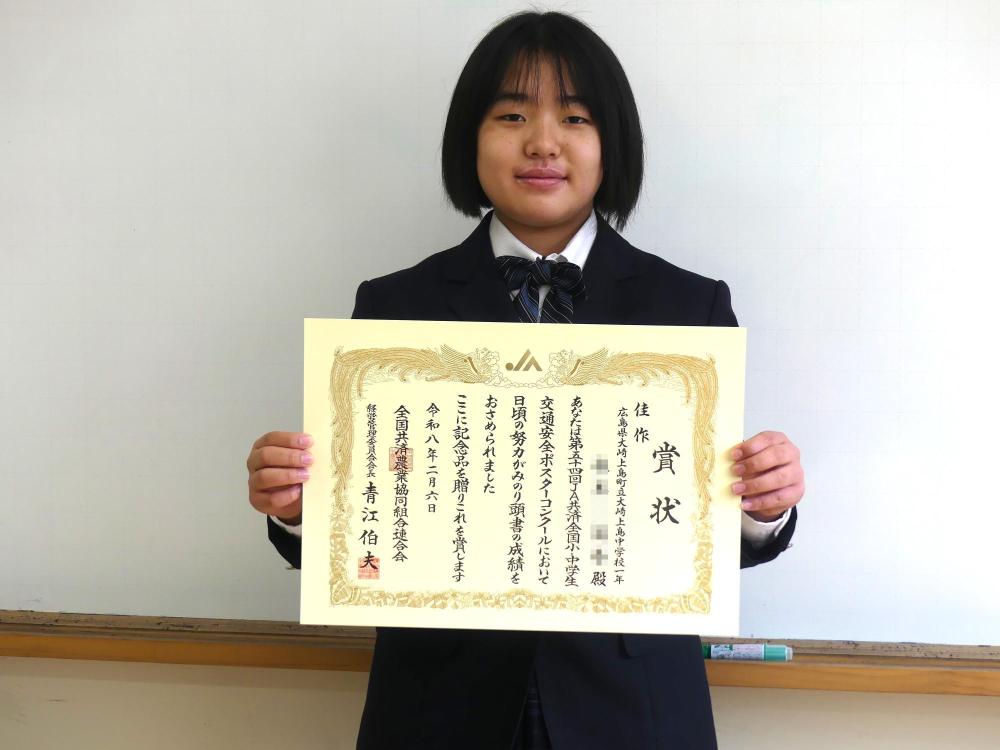 JA
賞状
佳作
広島県大崎上島町立大崎上島中学校一年
殿
あなたは第五十四回JA共済全国小・中学生
交通安全ポスターコンクールにおいて
日頃の努力がみのり頭書の成績を
おさめられました
ここに記念品を贈りこれを賞します
令和八年二月六日
全国共済農業協同組合連合会
経営管理委員会会長 青江伯夫